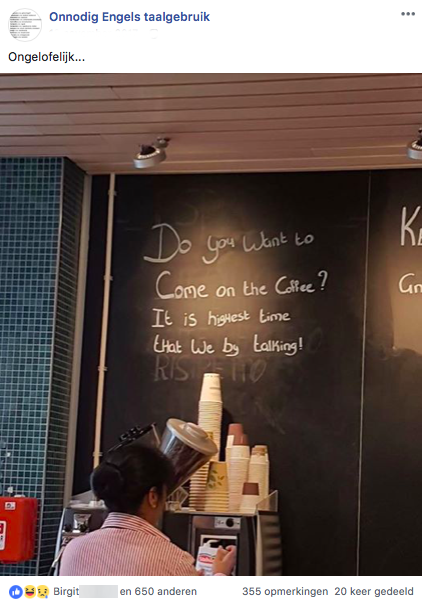 Onnodig Engels taalgebruik
Ongelofelijk...
Do you Want to
Come on the Coffee?
It is highest time
that We by talking!
RISTRETTO
K
Gr
Birgit en 650 anderen
355 opmerkingen 20 keer gedeeld